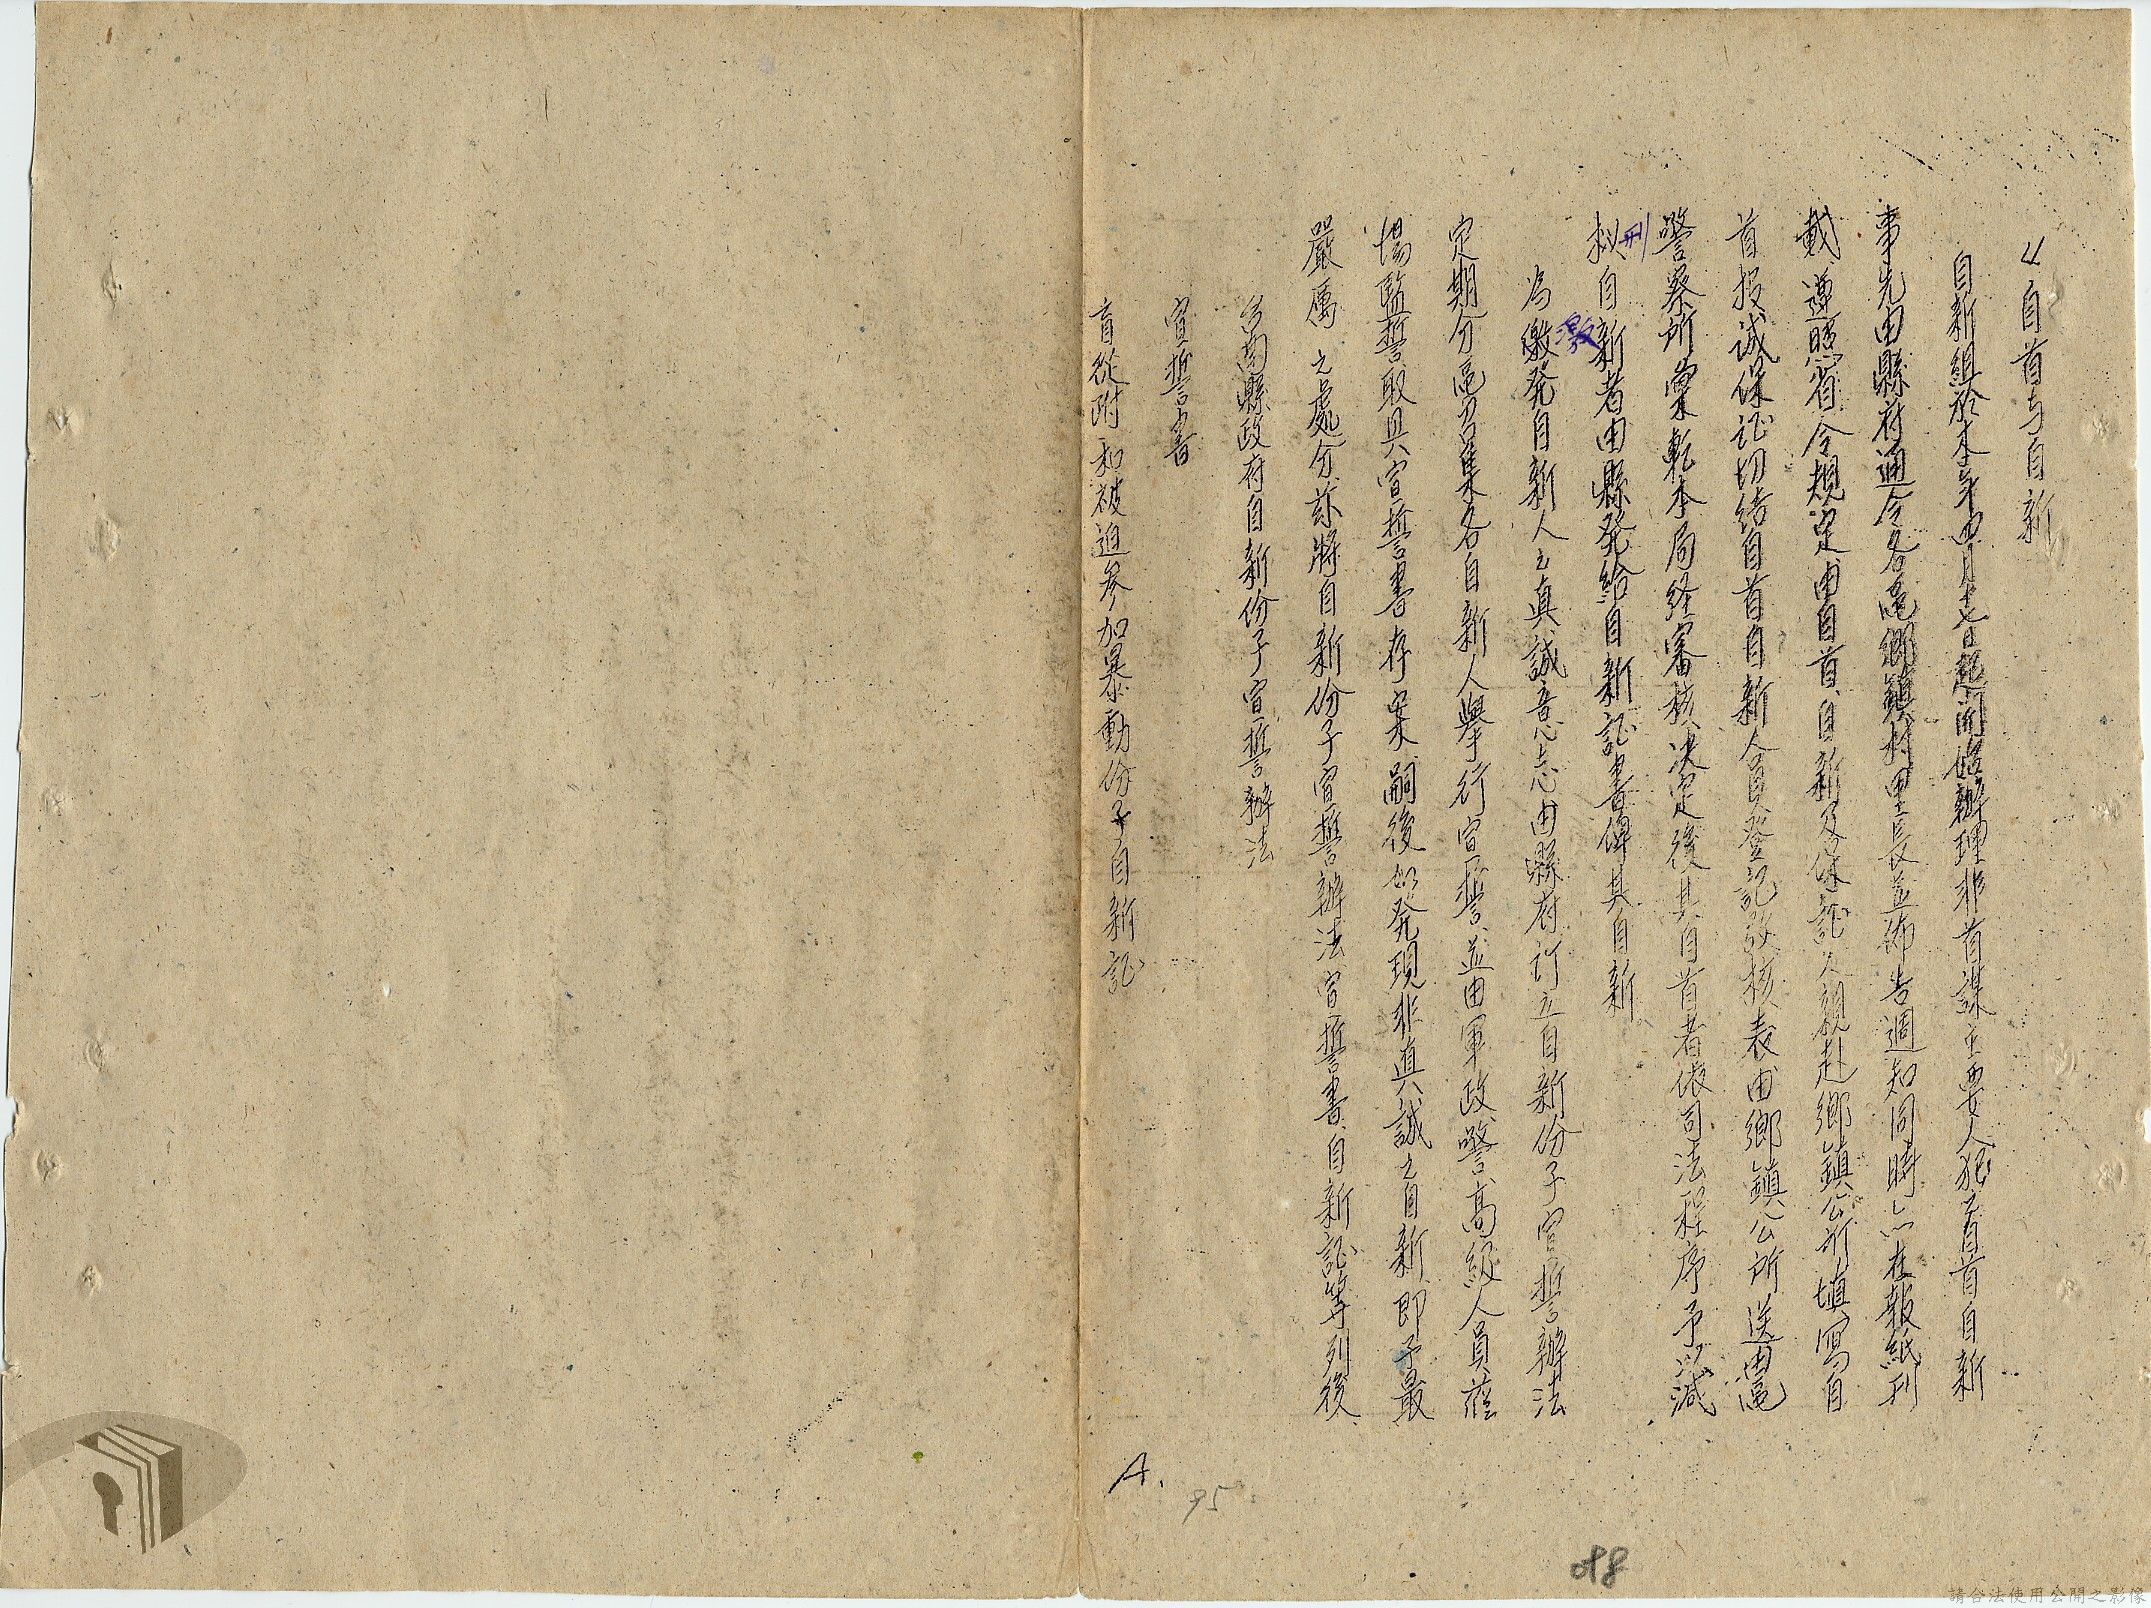 ㄑ自首与自新
自新組於本年四月十七日起開始辦理非首謀主要人犯首首自新
事先由縣府通令各區鄉鎮村里長並佈告週知同時亦在報紙刊
載遵照省令規定由自首、自新及保証人親赴鄉鎮公所填寫自
首投誠保証切结自首自新人員登記攷核表由鄉鎮公所送由區
警察所彙転本局経審核决定後其自首者依司法程序予以減
刑
拟自新者由縣発給自新証書俾其自新。
激
為發自新人之真誠意志由縣府订立自新份子宣誓辦法
定期分區召集各自新人舉行宣誓、並由軍政警高級人員蒞
場監誓取具宣誓書存案嗣後如発現非真誠之自新即予最
嚴厲之處分茲將自新份子宣誓辦法宣誓書、自新証等列後
台南縣政府自新份子宣誓辦法
宣誓書
盲從附和被迫參加暴動份子自新証
A.
95
088
請合法使用公開之影像